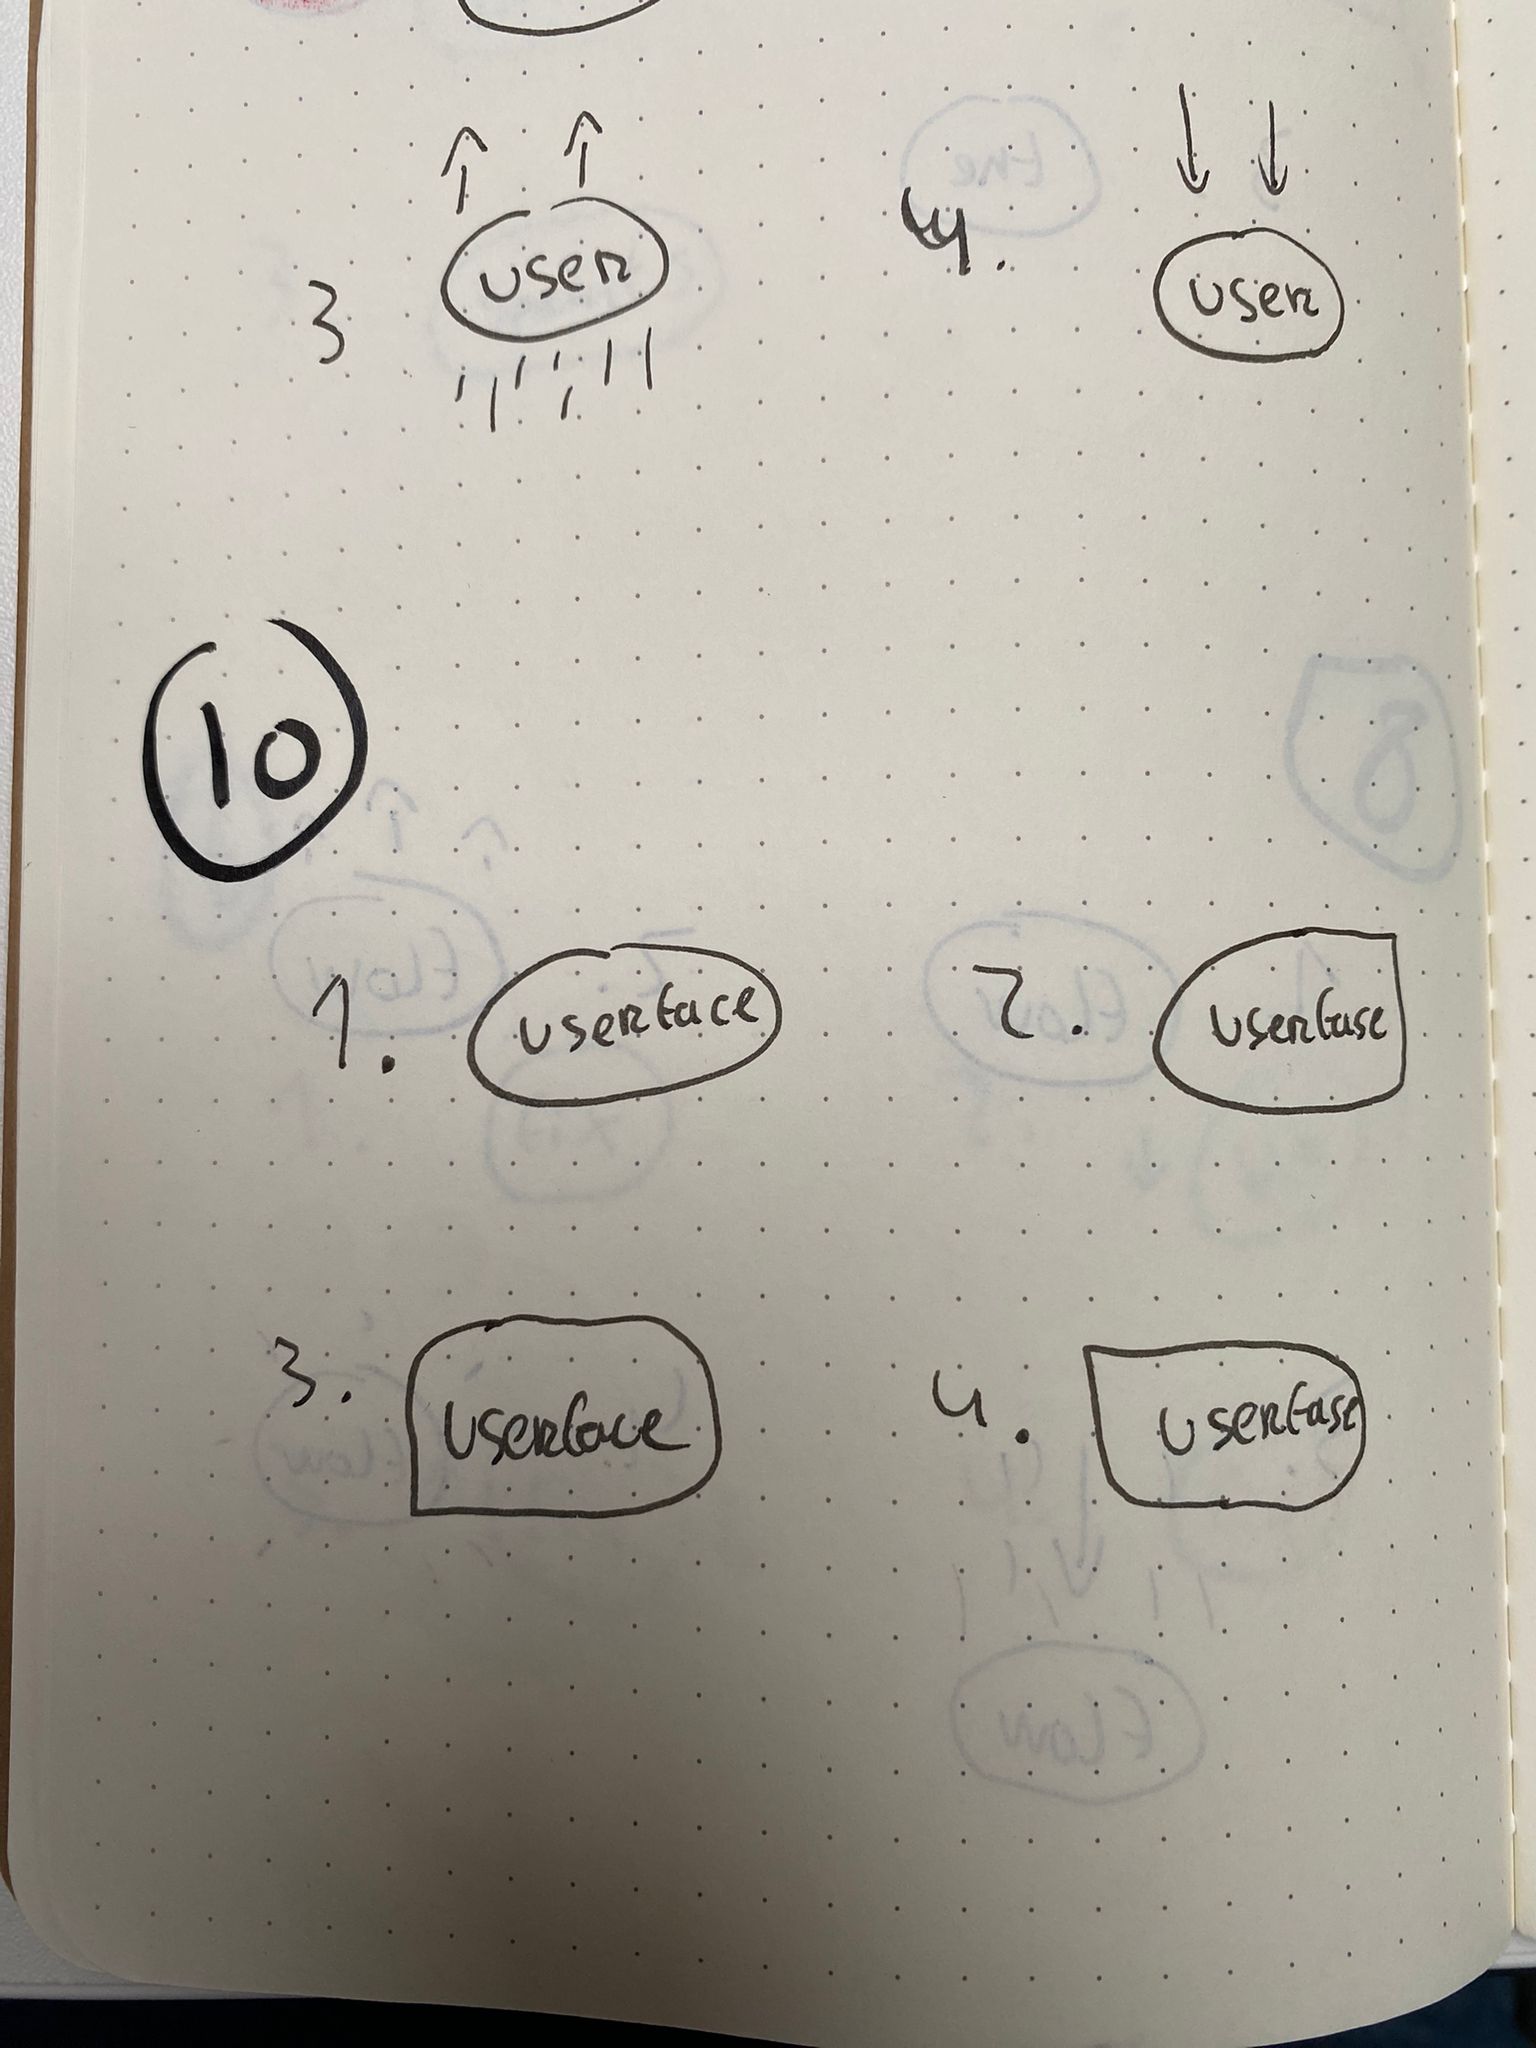 3 user
44. user
10
1. userface
2. userfase
3. userface
4. userfase